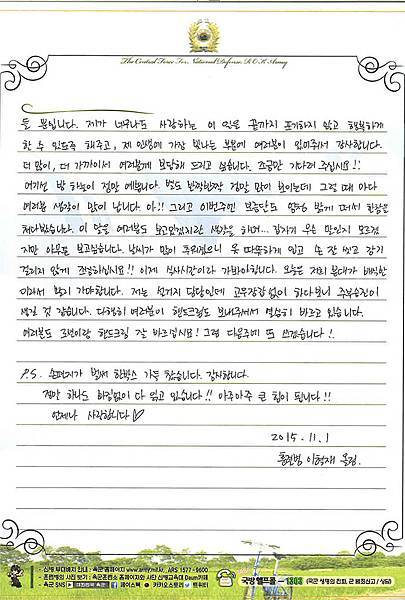 The Central Force For National Defense, R.O.K Army
들 뿐입니다. 제가 너무나도 사랑하는 이 일을 끝까지 포기하지 않고 행복하게
할 수 있도록 해주고, 제 인생에 가장 빛나는 부분에 여러분이 있어주셔서 감사합니다.
더 많이, 더 가까이서 여러분께 보답해 드리고 싶습니다. 조금만 기다려 주십시요!!
여기선 밤 하늘이 정말 예쁩니다. 별도 반짝반짝 정말 많이 보이는데 그럴 때 마다
여러분 생각이 많이 납니다. 아!! 그리고 이번주엔 보름달도 엄청 밝게 떠서 한참을
쳐다봤습니다. 이 달은 여러분도 보고있겠지란 생각을 하며... 갑자기 우는 말인지 모르겠
지만 아무튼 보고싶습니다. 날씨가 많이 추워졌으니 옷 따뜻하게 입고 손 잘 씻고 감기
걸리지 않게 조심하십시요!! 이제 식사시간이라 가봐야합니다. 오늘은 저희 분대가 배식조
이라서 빨리 가야합니다. 저는 설거지 담당인데 고무장갑없이 하다보니 주부습진이
생길 것 같습니다. 다행히 여러분이 핸드크림도 보내주셔서 열심히 바르고 있습니다.
여러분도 로션이랑 핸드크림 잘 바르십시요! 그럼 다음주에 또 쓰겠습니다!.
P.S. 손편지가 벌써 한박스 가득 찼습니다. 감사합니다.
정말 하나도 빠짐없이 다 읽고 있습니다!! 아주아주 큰 힘이 됩니다!!
언제나 사랑합니다♡
2015.11.1
훈련병 이혁재 올림.
신병 부대배치 안내 : 육군홈페이지 www.army.mil.kr, ARS 1577-9600
훈련병 사진 보기 : 육군훈련소 홈페이지와 사단 신병교육대 Daum카페
육군 SNS 페이스북 카카오스토리 트위터
국방헬프콜 - 1303 (국군 생명의 전화, 군 범죄신고 / 상담)